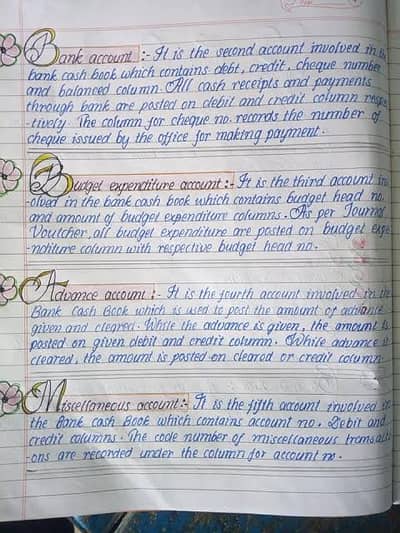 Bank account :- It is the second account involved in the
bank cash book which contains debt, credit, cheque number
and balanced column. All cash receipts and payments
through bank are posted on debit and credit column respe
-tively. The column for cheque no. records the number of
cheque issued by the office for making payment.
Budget expenditure account :- It is the third account inv
-olved in the bank cash book which contains budget head no.
and amount of budget expenditure columns. As per Journal
Voutcher, all budget expenditure are posted on budget expe
-nditure column with respective budget head no.
Advance account :- It is the fourth account involved in the
Bank Cash Book which is used to post the amount of advance
given and cleared. While the advance is given, the amount is
posted on given debit and credit column. While advance is
cleared, the amount is posted on cleared or credit column.
Miscellaneous account :- It is the fifth account involved in
the Bank cash Book which contains account no. Debit and
credit columns. The code number of miscellaneous transacti
-ons are recorded under the column for account no.